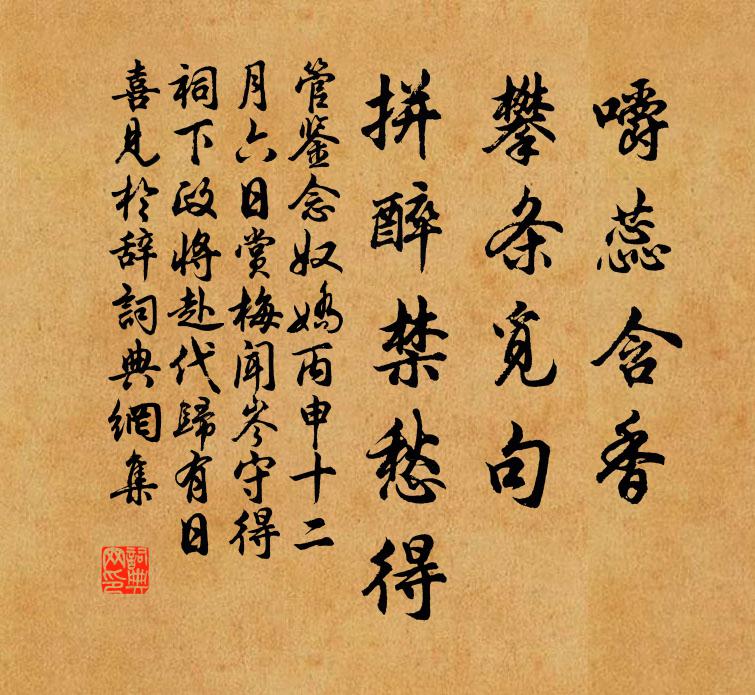 嚼蕊含香
攀条觅句
拼醉禁愁得
管鉴念奴娇丙申十二
月六日赏梅闻岑守得
祠下政将赴代歸有日
喜見於辞詞典網集
詞典
网印